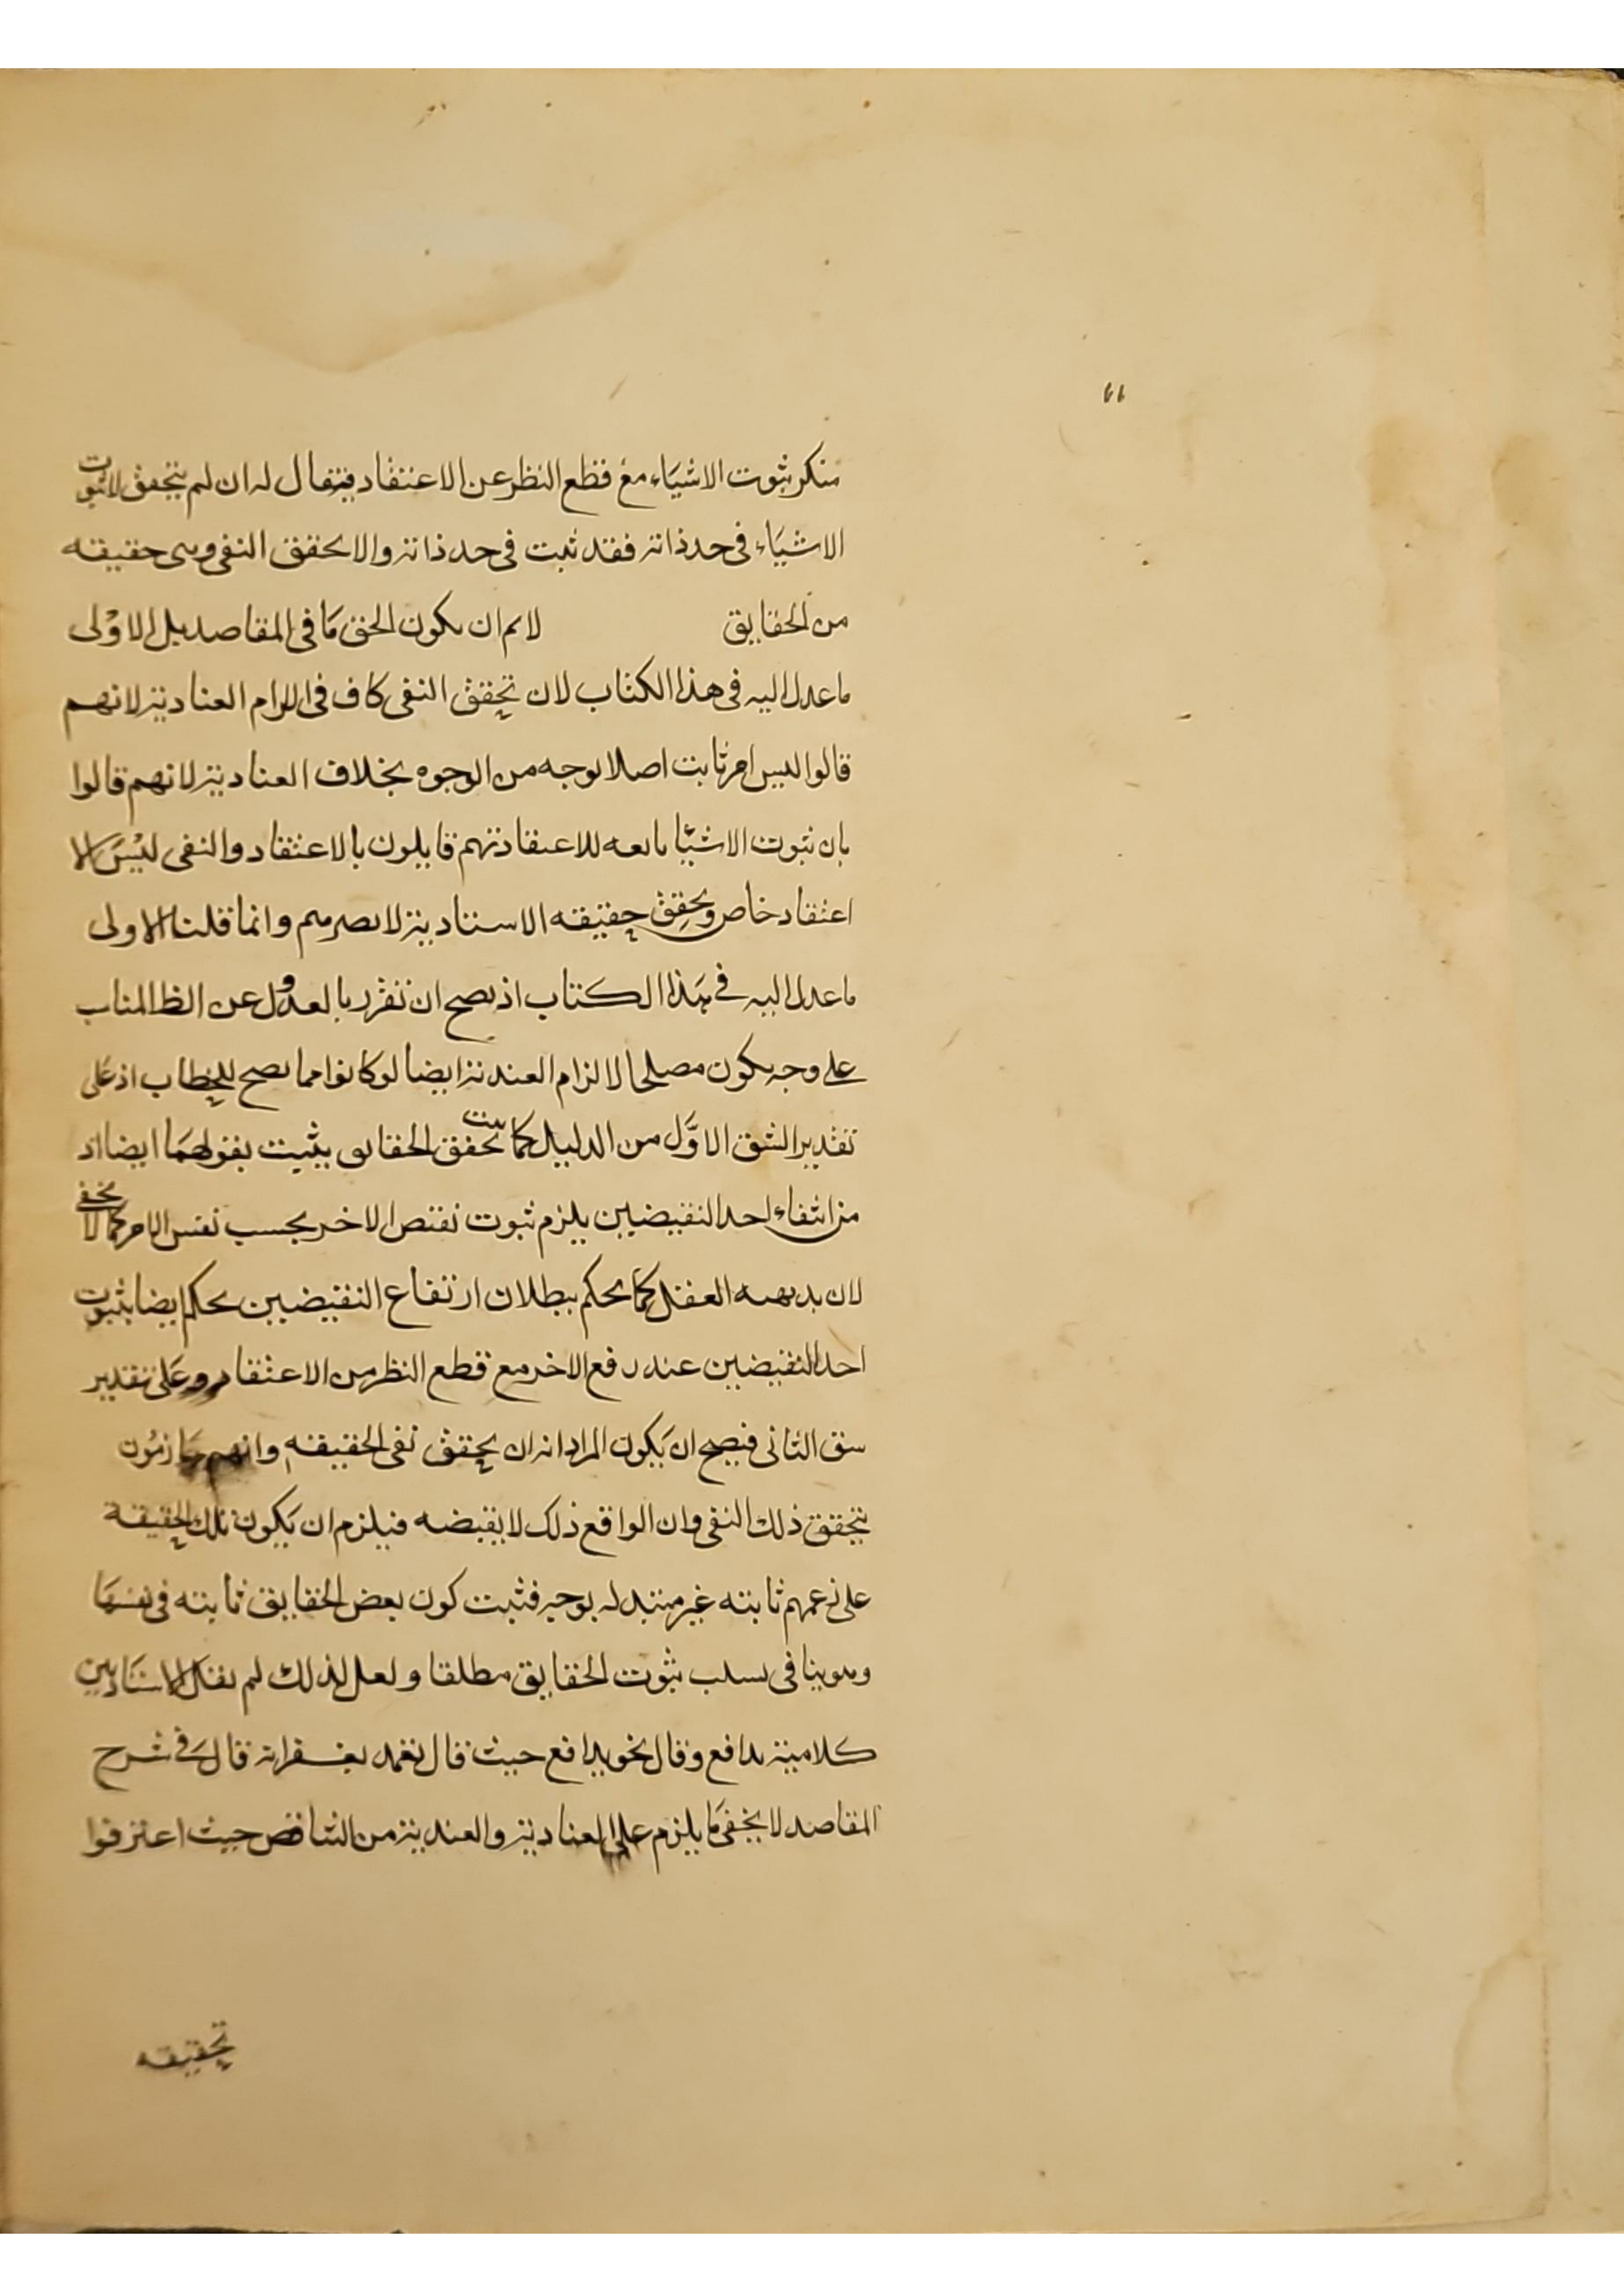 منكر ثبوت الاشياء مع قطع النظر عن الاعتقاد فيقال له ان لم يتحقق لاثبوت
الاشياء في حد ذاته فقد ثبت في حد ذاته والا تحقق النفي وهي حقيقه
من الحقايق لانم ان يكون الحق ما في المقاصد بل الاولى
ما عدل اليه في هذا الكتاب لان تحقق النفي كاف في الزام العنادية لانهم
قالوا ليس امر ثابت اصلا بوجه من الوجوه بخلاف العنادية لانهم قالوا
بان ثبوت الاشيا تابعه للاعتقاد فهم قايلون بالاعتقاد والنفي ليس الا
اعتقاد خاص وتحقق حقيقه الاسنادية لا يضرهم وانما قلنا الاولى
ما عدل اليه في هذا الكتاب اذ يصح ان تقرر بالعدول عن الظ المناب
على وجه يكون مصلحا لالزام العندية ايضا لو كانوا مما يصح للخطاب اذ على
تقدير الشق الاوّل من الدليل كما يثبت تحقق الحقايق يثبت بقولهما ايضا اذ
من انتفاء احد النقيضين يلزم ثبوت نقيض الاخر بحسب نفس الامر كما لا يخفى
لان بديهيه العقل كما يحكم ببطلان ارتفاع النقيضين يحكم ايضا بثبوت
احد النقيضين عند رفع الاخر مع قطع النظر من الاعتقاد وعلى تقدير
شق الثاني فيصح ان يكون المراد انه ان يحقق نفي الحقيقه وانهم جازمون
بتحقق ذلك النفي وان الواقع ذلك لا نقيضه فيلزم ان يكون تلك الحقيقة
على زعمهم ثابته غير متبدله بوجه فثبت كون بعض الحقايق ثابته في نفسها
وهو ينافي سلب ثبوت الحقايق مطلقا ولعل لذلك لم يقل الاسنادين
كلامية تدافع وقال نحو تدافع حيث قال تغمد بغفرانه قال في شرح
المقاصد لا يخفى ما يلزم على العنادية والعندية من التناقض حيث اعترفوا
تحقيقه